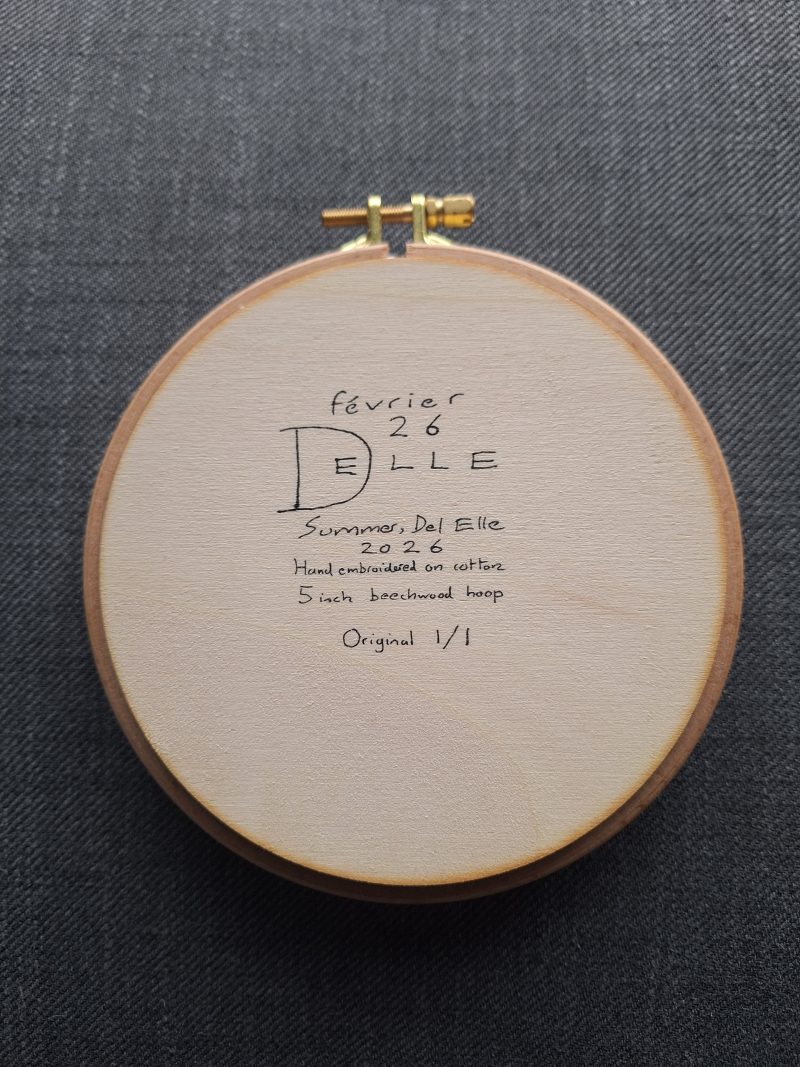 février
26
DELLE
Summer, Del Elle
2026
Hand embroidered on cotton
5 inch beechwood hoop
Original 1/1